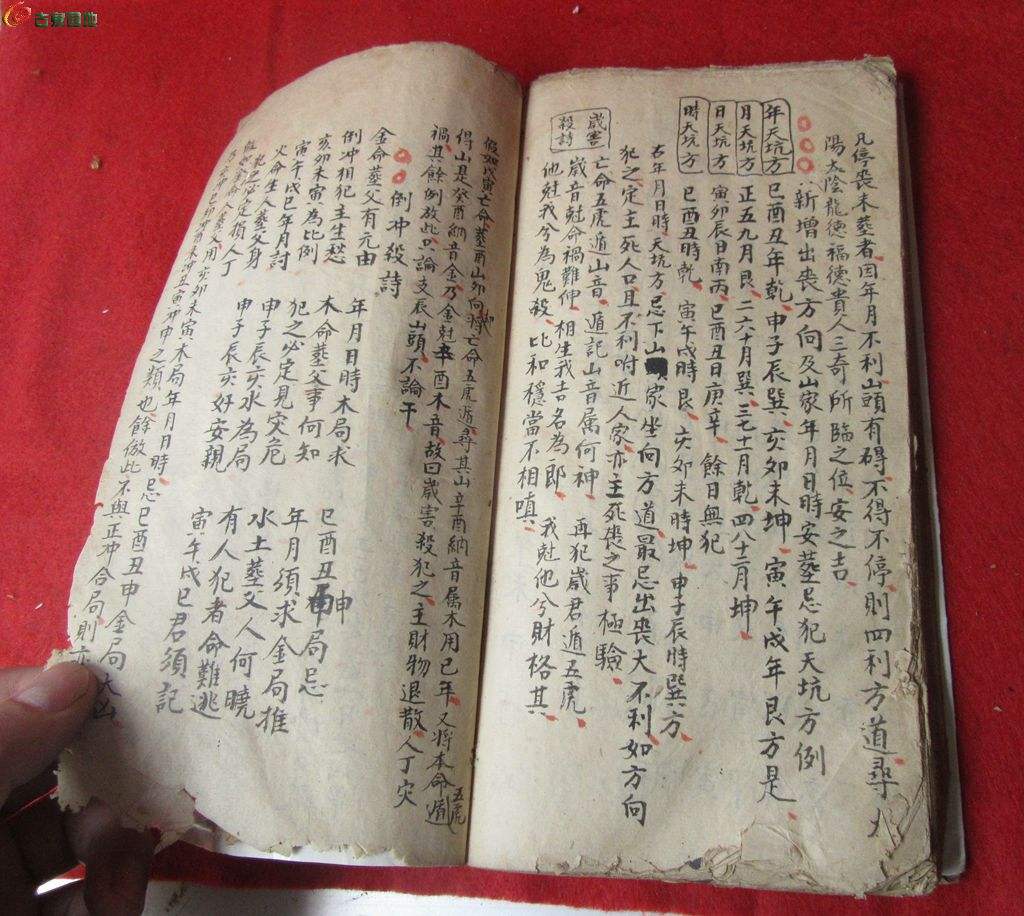 古泉园地
凡停喪未葬者因年月不利山頭有碍不得不停則四利方道尋
陽太陰龍德福德貴人三奇所臨之位安之吉
新增出喪方向及山家年月日時安葬忌犯天坑方例
年天坑方 巳酉丑年乾 申子辰巽 亥卯未坤 寅午戌年艮方是
月天坑方 正五九月艮 二六十月巽 三七十一月乾 四八十二月坤
日天坑方 寅卯辰日南丙 巳酉丑日庚辛 餘日無犯
時天坑方 巳酉丑時乾 寅午戌時艮 亥卯未時坤 申子辰時巽方
右年月日時天坑方忌下山家坐向方道最忌出喪大不利如方向
犯之定主死人口且不利附近人家亦主死喪之事極驗
歲害殺詩
亡命五虎遁山音 遁記山音属何神 再犯歲君遁五虎
歲音尅命禍難伸 相生我吉名為郎 我尅他兮財格其
他尅我兮為鬼殺 比和穩當不相嗔
假如戊寅亡命葬酉山卯向將亡命五虎遁尋其山辛酉納音属木用巳年又將本命遁五虎
得山是癸酉納音金乃金尅辛酉木音故曰歲害殺犯之主財物退散人丁灾
禍其餘例放此只論支辰山頭不論干
倒冲殺詩
金命葬父有元由 年月日時木局求
倒冲相犯主生愁 木命葬父事何知 巳酉丑申局忌
亥卯未寅為比例 犯之必定見灾危 年月須求金局推
寅午戌巳年月討 申子辰亥水為局 水土葬父人何曉
火命生人葬父身 申子辰亥好安親 有人犯者命難逃
犯之必定損人丁 寅午戌巳君須記
假如金命人葬父用亥卯未寅木局年月日時忌巳酉丑申金局大凶